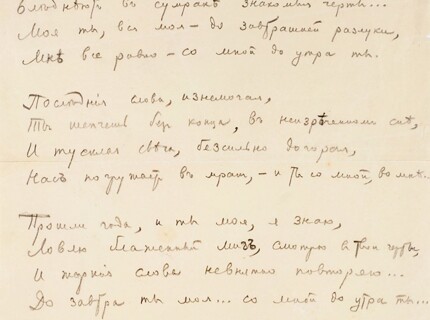 Блѣднѣютъ въ сумракѣ знакомыя черты...
Моя ты, вся моя – до завтрашней разлуки,
Мнѣ все равно – со мной до утра ты.
Послѣднія слова, изнемогая,
Ты шепчешь безъ конца, въ неизрѣченномъ снѣ,
И тусклая свѣча, безсильно догорая,
Насъ погружаетъ въ мракъ, – и ты со мной, во мнѣ...
Прошли года, и ты моя, я знаю,
Ловлю блаженный мигъ, смотрю въ твои черты,
И жаркія слова невнятно повторяю...
До завтра ты моя... со мной до утра ты...